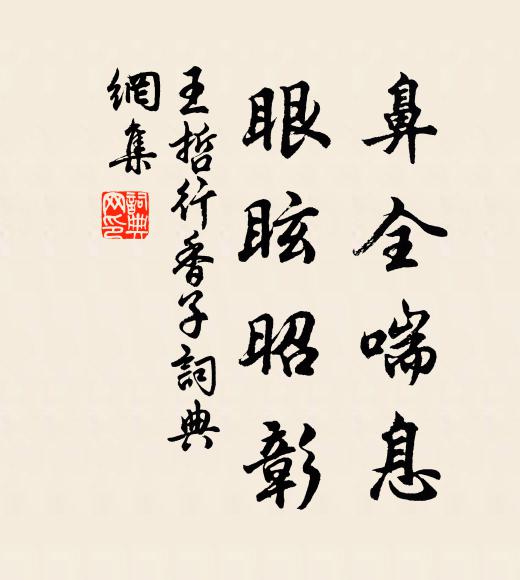 鼻全喘息
眼眩昭彰
王哲行香子詞典
網集
詞典
网印